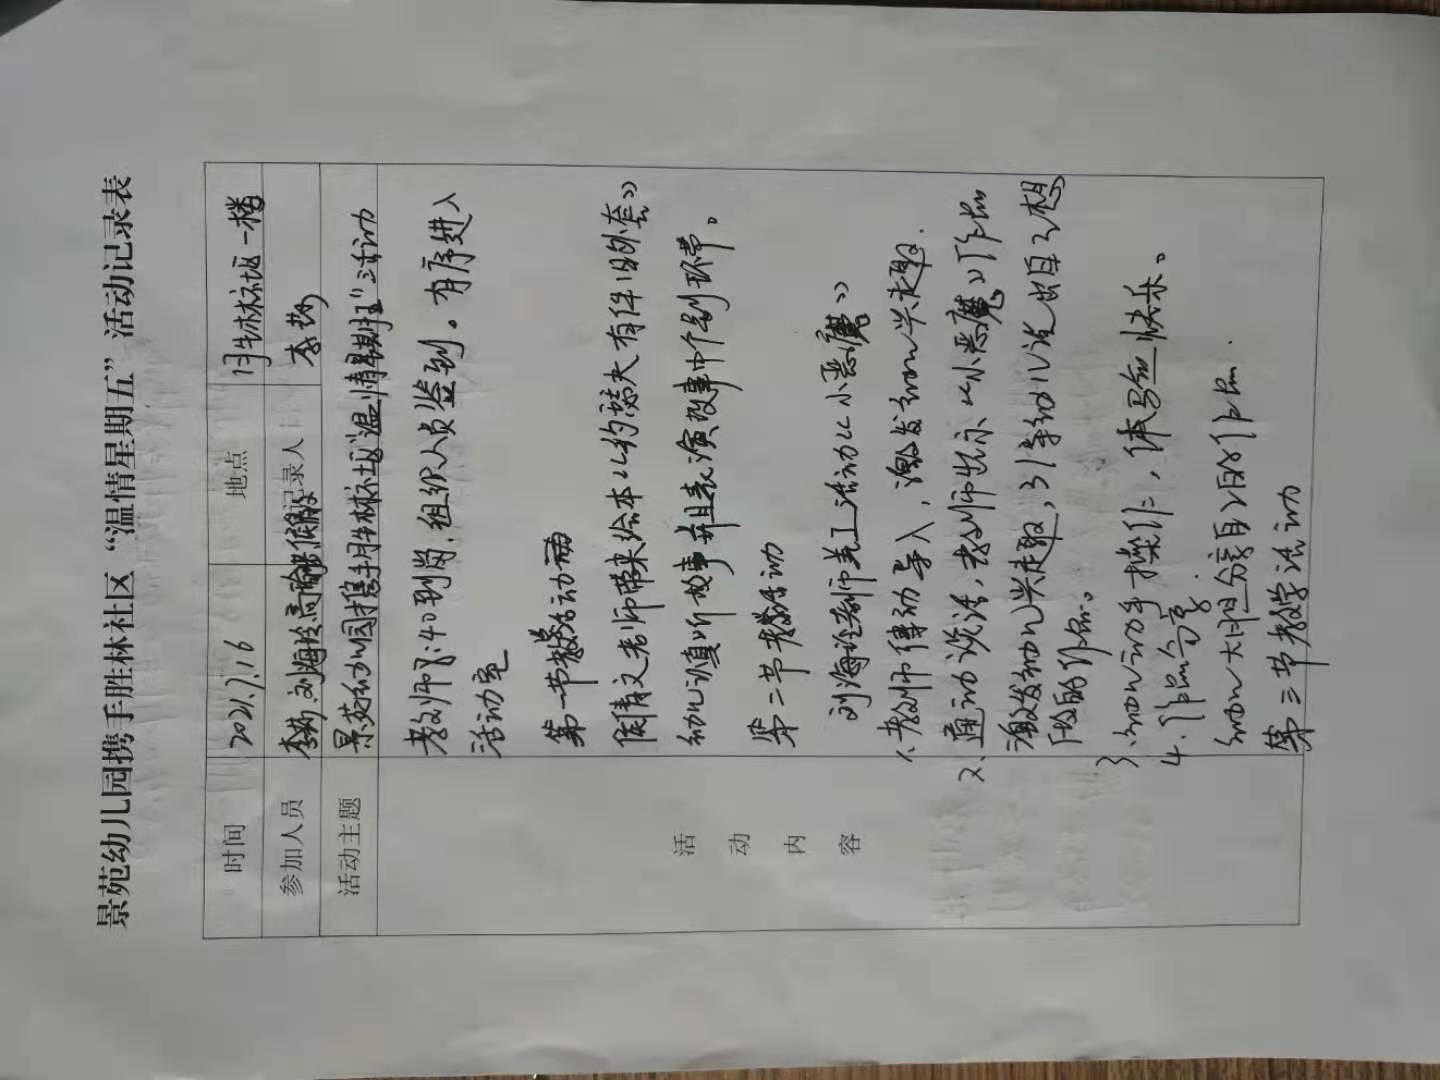 景苑幼儿园携手胜林社区“温情星期五”活动记录表
时间 2021.7.16 地点 胜林社区一楼
参加人员 李娜、刘海玲 记录人 李娜
活动主题 景苑幼儿园携手胜林社区“温情星期五”活动
活动内容
教师8:40到岗,组织人员签到。有序进入
活动室
第一节教学活动
老师带来绘本《约瑟夫有件旧外套》
幼儿认真听故事并且表演故事中个别环节。
第二节教学活动
刘海玲老师美工活动《小恶魔》
1、教师律动导入,激发幼儿兴趣.
2、通过谈话,教师出示《小恶魔》作品
激发幼儿兴趣,引导幼儿说出自己想
的作品。
3、幼儿动手操作,体验快乐。
4.作品分享.
幼儿大胆分享自己的作品.
第三节教学活动